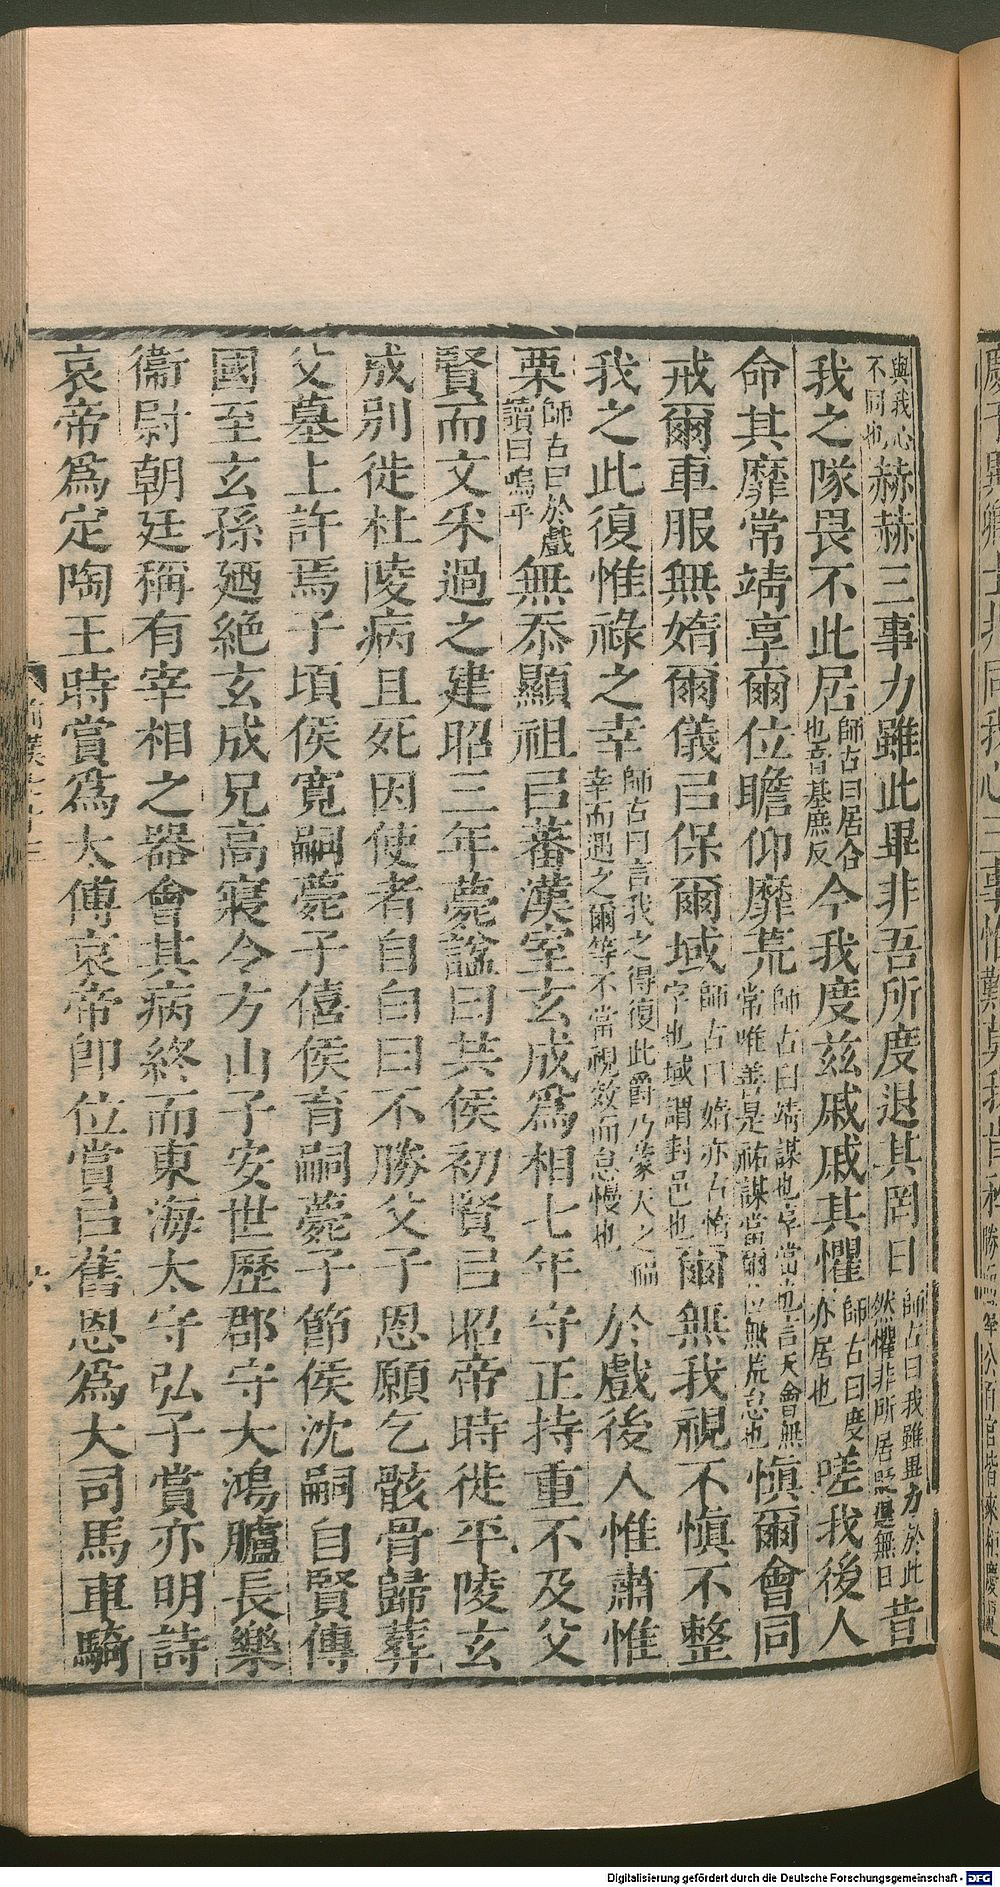 與我心不同也赫赫三事力雖此畢非吾所度退其罔日師古曰我雖畢力於此然懼非所居貶退無日昔
我之隊畏不此居師古曰居合也音基庶反今我度茲戚戚其懼師古曰度亦居也嗟我後人
命其靡常靖享爾位瞻仰靡荒師古曰靖謀也享當也言天會無常唯善是祐謀當爾位無荒怠也愼爾會同
戒爾車服無媠爾儀㠯保爾域師古曰媠亦古惰字也域謂封邑也爾無我視不愼不整
我之此復惟祿之幸師古曰言我之得復此爵乃蒙天之福幸而遇之爾等不當視效而怠慢也於戲後人惟肅惟
栗師古曰於戲讀曰嗚乎無忝顯祖㠯蕃漢室玄成爲相七年守正持重不及父
賢而文釆過之建昭三年薨諡曰共侯初賢㠯昭帝時徙平陵玄
成別徙杜陵病且死因使者自白曰不勝父子恩願乞骸骨歸葬
父墓上許焉子頃侯寬嗣薨子僖侯育嗣薨子節侯沈嗣自賢傳
國至玄孫廼絕玄成兄高寢令方山子安世歷郡守大鴻臚長樂
衞尉朝廷稱有宰相之器會其病終而東海太守弘子賞亦明詩
哀帝爲定陶王時賞爲太傅哀帝卽位賞㠯舊恩爲大司馬車騎
六
Digitalisierung gefördert durch die Deutsche Forschungsgemeinschaft - DFG